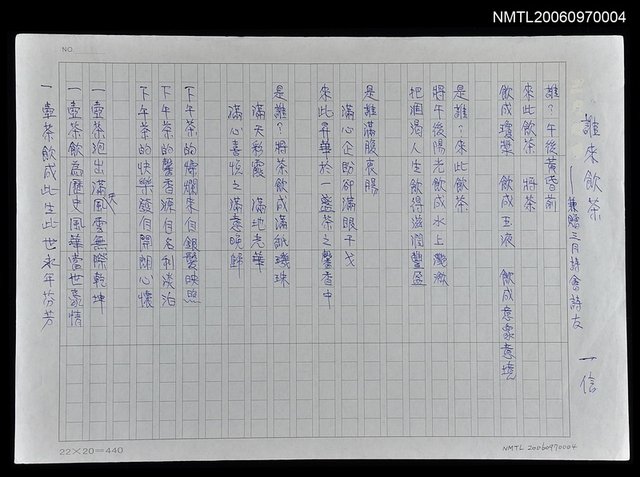 NMTL20060970004
NO.
誰來飲茶
——兼贈三月詩會詩友
一信
誰？午後黃昏前
來此飲茶 將茶
飲成瓊漿 飲成玉液 飲成意象意境
是誰？來此飲茶
將午後陽光飲成水上瀲灩
把涸渴人生飲得滋潤豐盈
是誰滿腹衷腸
滿心企盼卻滿眼干戈
來此昇華於一盞茶之馨香中
是誰？將茶飲成滿紙璣珠
滿天彩霞 滿地光華
滿心喜悅之滿意晚歸
下午茶的燦爛來自銀髮映照
下午茶的馨香源自名利淡泊
下午茶的快樂發自開朗心懷
一壺茶泡出滿天風雲無際乾坤
一壺茶飲為歷史風華當世豪情
一壺茶飲成此生此世永年芬芳
22×20=440
NMTL 20060970004